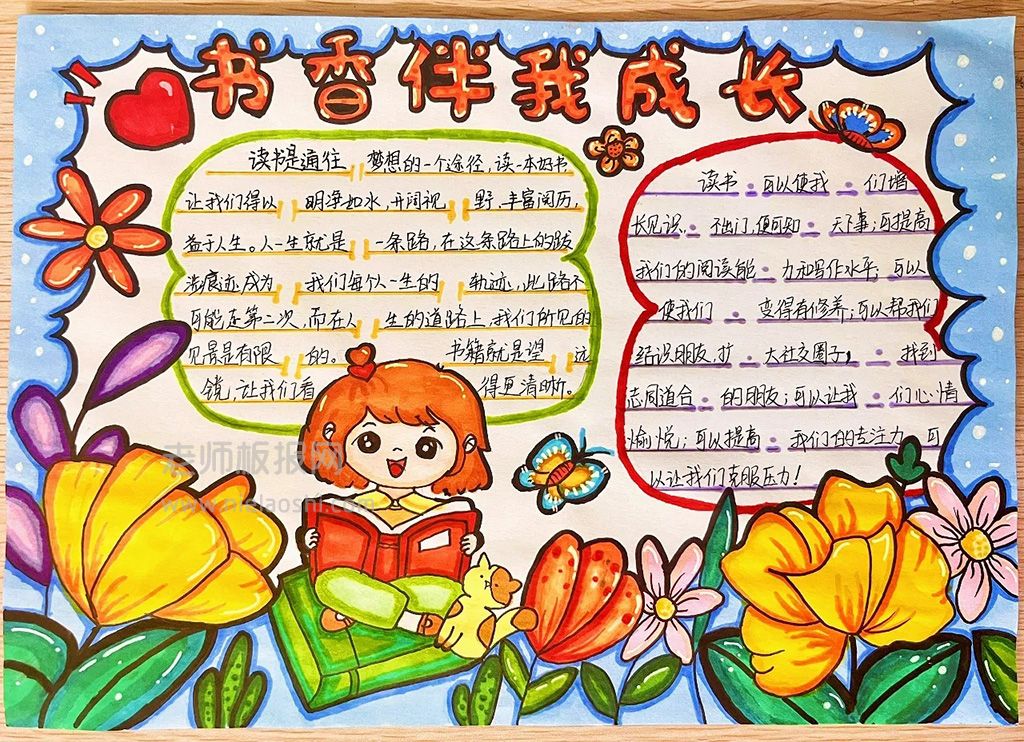 书香伴我成长
读书是通往 梦想的一个途径,读一本好书
让我们得以 明净如水,开阔视 野、丰富阅历,
益于人生。人一生就是 一条路,在这条路上的跋
涉痕迹成为 我们每个人一生的 轨迹,此路不
可能走第二次,而在人 生的道路上,我们所见的
见景是有限 的。 书籍就是望 远
镜,让我们看 得更清晰。
读书 可以使我 们增
长见识, 不出门,便可知 天下事;可提高
我们的阅读能 力和写作水平;可以
使我们 变得有修养;可以帮我们
结识朋友,扩 大社交圈子, 找到
志同道合 的朋友;可以让我 们心情
愉悦;可以提高 我们的专注力 可
以让我们克服压力!
老师板报网